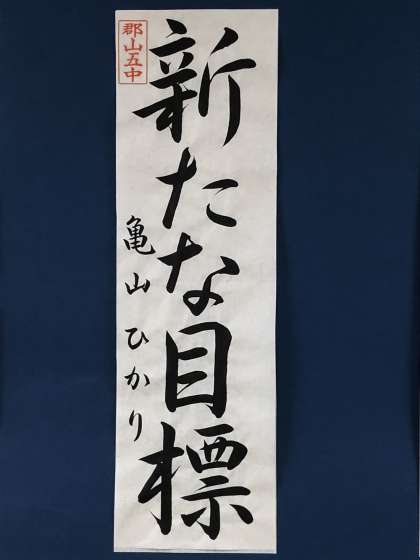 新たな目標
亀山ひかり
郡山五中